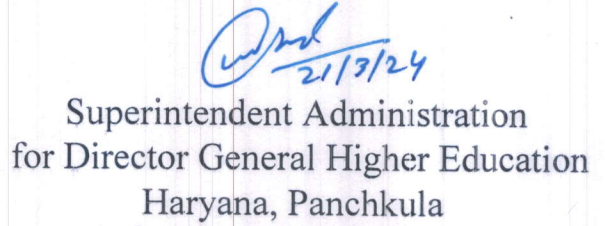 21/3/24
Superintendent Administration
for Director General Higher Education
Haryana, Panchkula